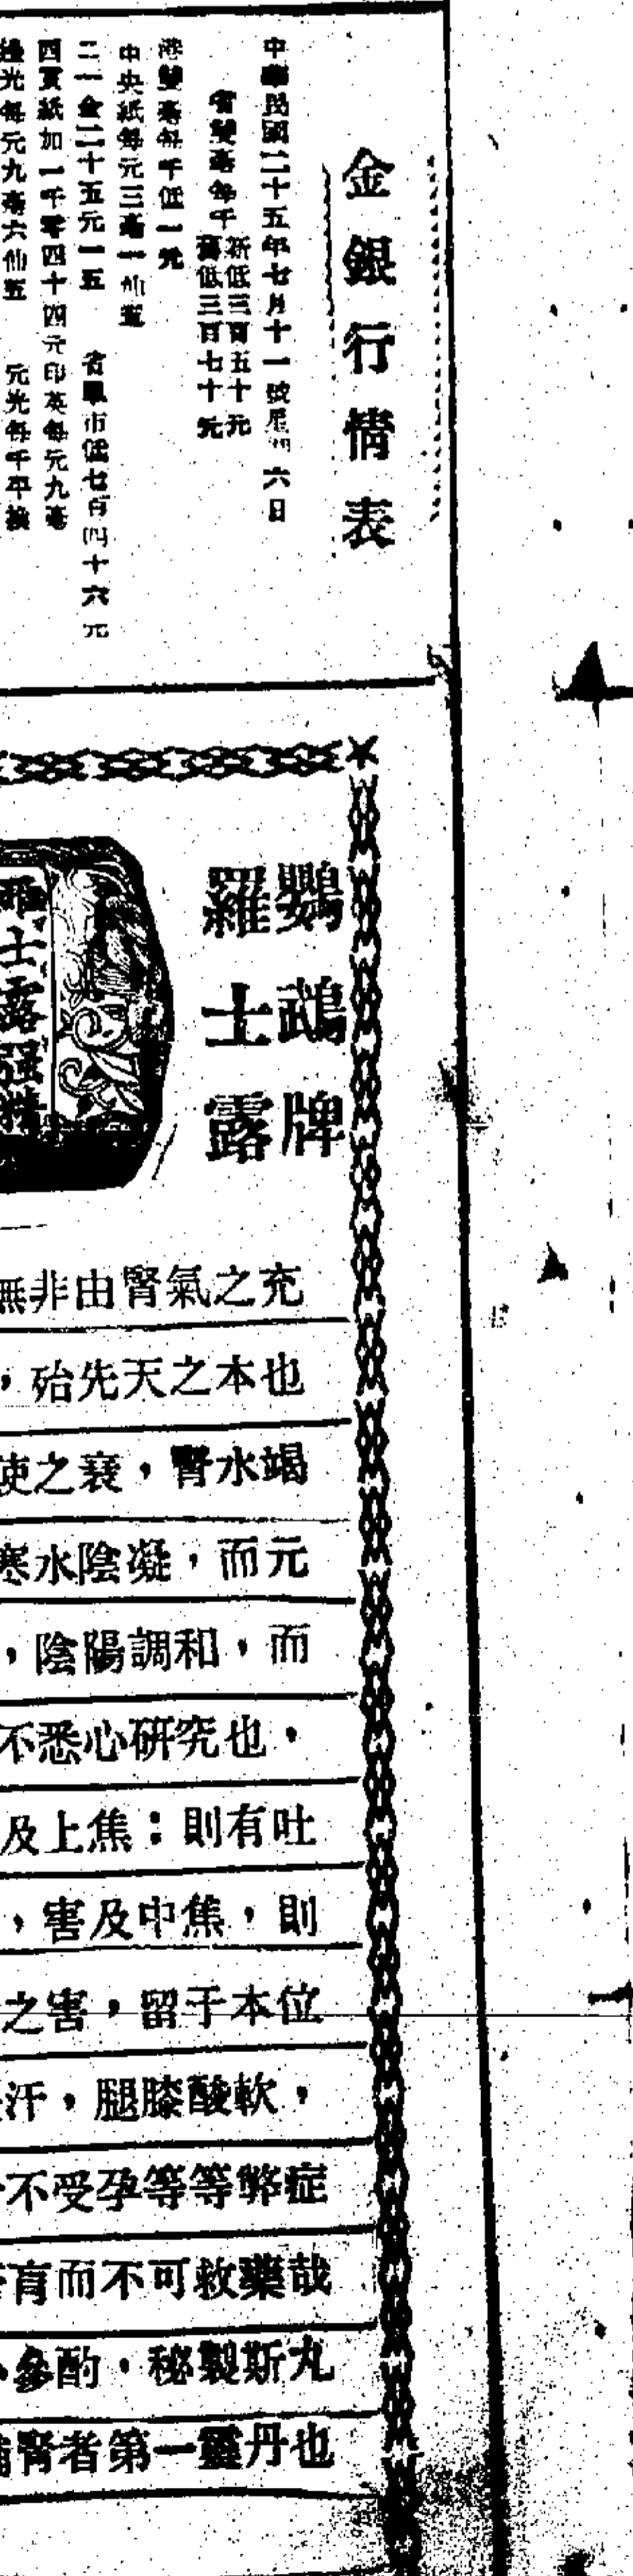 金銀行情表
中華民國二十五年七月十一號星期六日
省雙毫每千
新低三百五十元
舊低三百七十元
港雙毫每千低一元
中央紙每元三毫一仙五
二一金二十五元一五
省單市低七百四十六元
四貢紙加一千零四十四元印英每元九毫
光每元九毫六仙五
元光每千平換
鸚鵡牌
羅士露
士露强精
無非由腎氣之充
，殆先天之本也
使之衰，腎水竭
寒水陰凝，而元
，陰陽調和，而
不悉心研究也，
及上焦：則有吐
，害及中焦，則
之害，留于本位
汗，腿膝酸軟，
不受孕等等弊症
肓而不可救藥哉
參酌，秘製斯丸
補腎者第一靈丹也